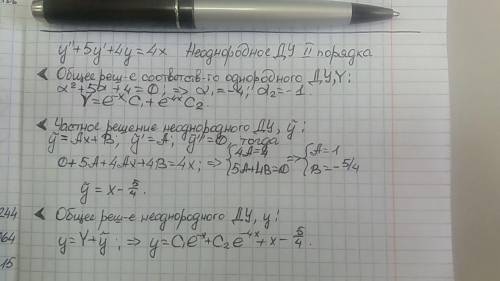 y''+5y'+4y=4x Неоднородное ДУ II порядка
Общее реш-е соответств-го однородного ДУ, Y:
α²+5α+4=0; => α₁=-4; α₂=-1
Y=e⁻ˣC₁+e⁻⁴ˣC₂.
Частное решение неоднородного ДУ, ỹ:
ỹ=Ax+B; ỹ'=A; ỹ''=0, тогда
0+5A+4Ax+4B=4x; => {4A=4 5A+4B=0 => {A=1 B=-5/4
ỹ=x-5/4.
244
Общее реш-е неоднородного ДУ, y:
264
y=Y+ỹ; => y=C₁e⁻ˣ+C₂e⁻⁴ˣ+x-5/4.
15